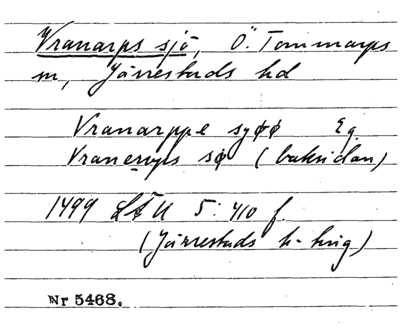 Vranarps sjö, Ö. Tommarps
sn, Järrestads hd
Vranarppe syøø Eg.
Vranerups sø (baksidan)
1499 LÄU 5: 410 f.
(Järrestads h-ting)
Nr 5468.